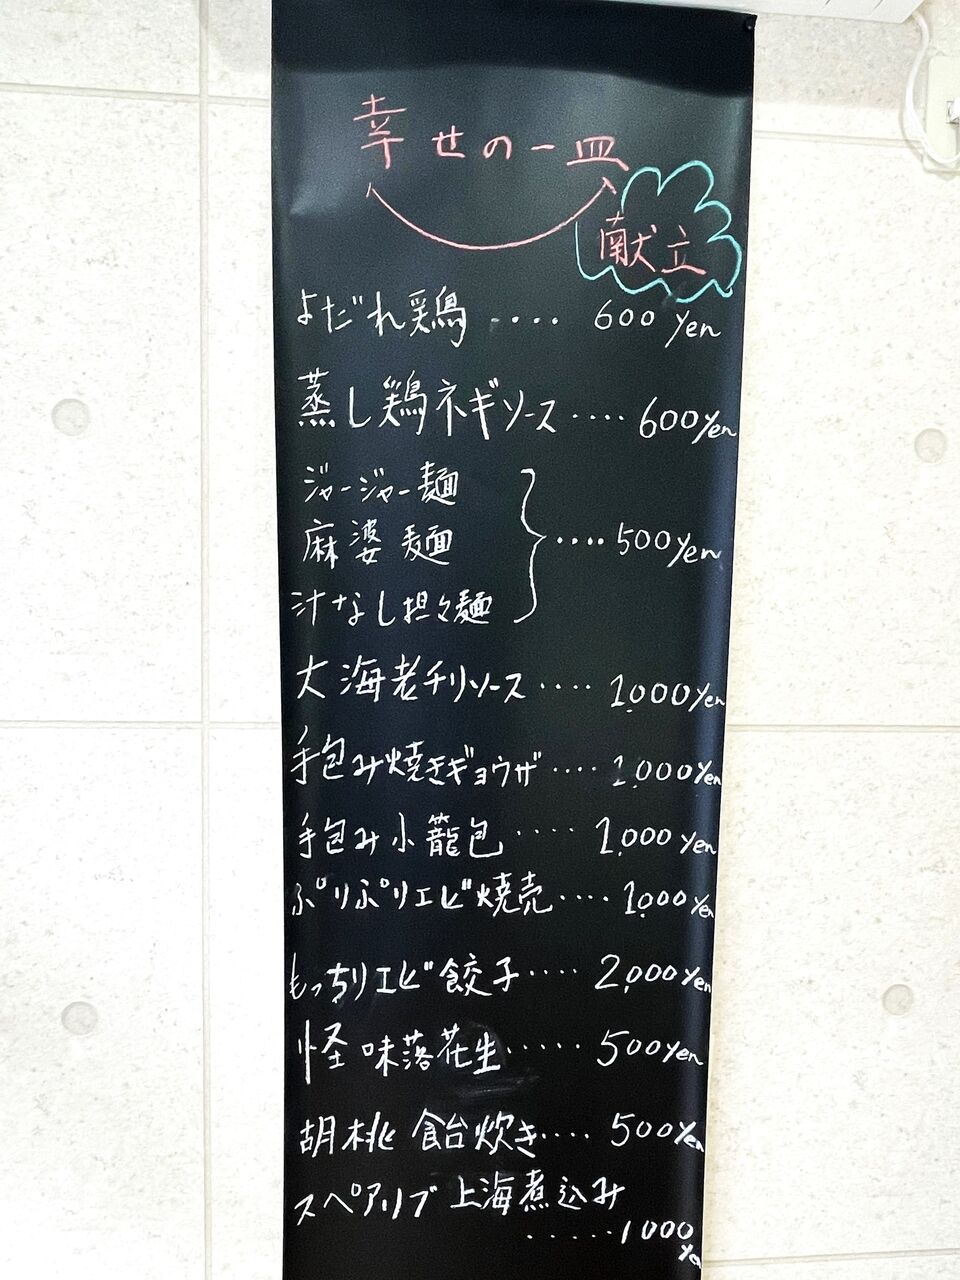 幸せの一皿
献立
よだれ鶏 .... 600 yen
蒸し鶏ネギソース .... 600yen
ジャージャー麺
麻婆麺
汁なし担々麺
.... 500yen
大海老チリソース .... 1,000yen
手包み焼きギョウザ .... 1,000yen
手包み小籠包 ..... 1,000yen
ぷりぷりエビ焼売 .... 1,000yen
もっちりエビ餃子 .... 2,000yen
怪味落花生 ..... 500yen
胡桃飴炊き .... 500yen
スペアリブ上海煮込み
...... 1000
yen